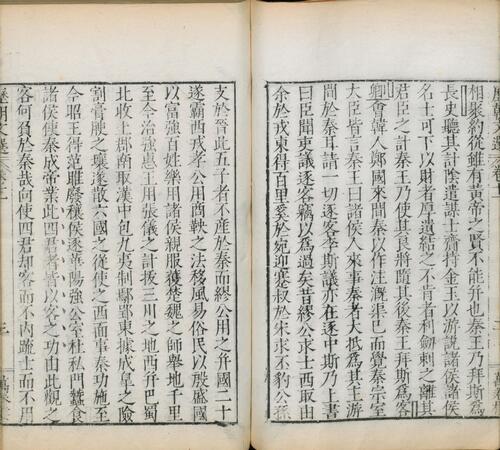 相聚約從雖有黃帝之賢不能并也秦王乃拜斯為
長史聽其計陰遣謀士齎持金玉以游說諸侯諸侯
名士可下以財者厚遺結之不肯者利劍刺之離其
君臣之計秦王乃使其良將隨其後秦王拜斯為客
卿會韓人鄭國來間秦以作注溉渠已而覺秦宗室
大臣皆言秦王曰諸侯人來事秦者大抵為其主游
間於秦耳請一切逐客李斯議亦在逐中斯乃上書
曰臣聞吏議逐客竊以為過矣昔繆公求士西取由
余於戎東得百里奚於宛迎蹇叔於宋求丕豹公孫
支於晉此五子者不產於秦而繆公用之并國二十
遂霸西戎孝公用商鞅之法移風易俗民以殷盛國
以富強百姓樂用諸侯親服獲楚魏之師舉地千里
至今治強惠王用張儀之計拔三川之地西并巴蜀
北收上郡南取漢中包九夷制鄢郢東據成皋之險
割膏腴之壤遂散六國之從使之西面事秦功施至
今昭王得范雎廢穰侯逐華陽強公室杜私門蠶食
諸侯使秦成帝業此四君者皆以客之功由此觀之
客何負於秦哉向使四君卻客而不內疏士而不用